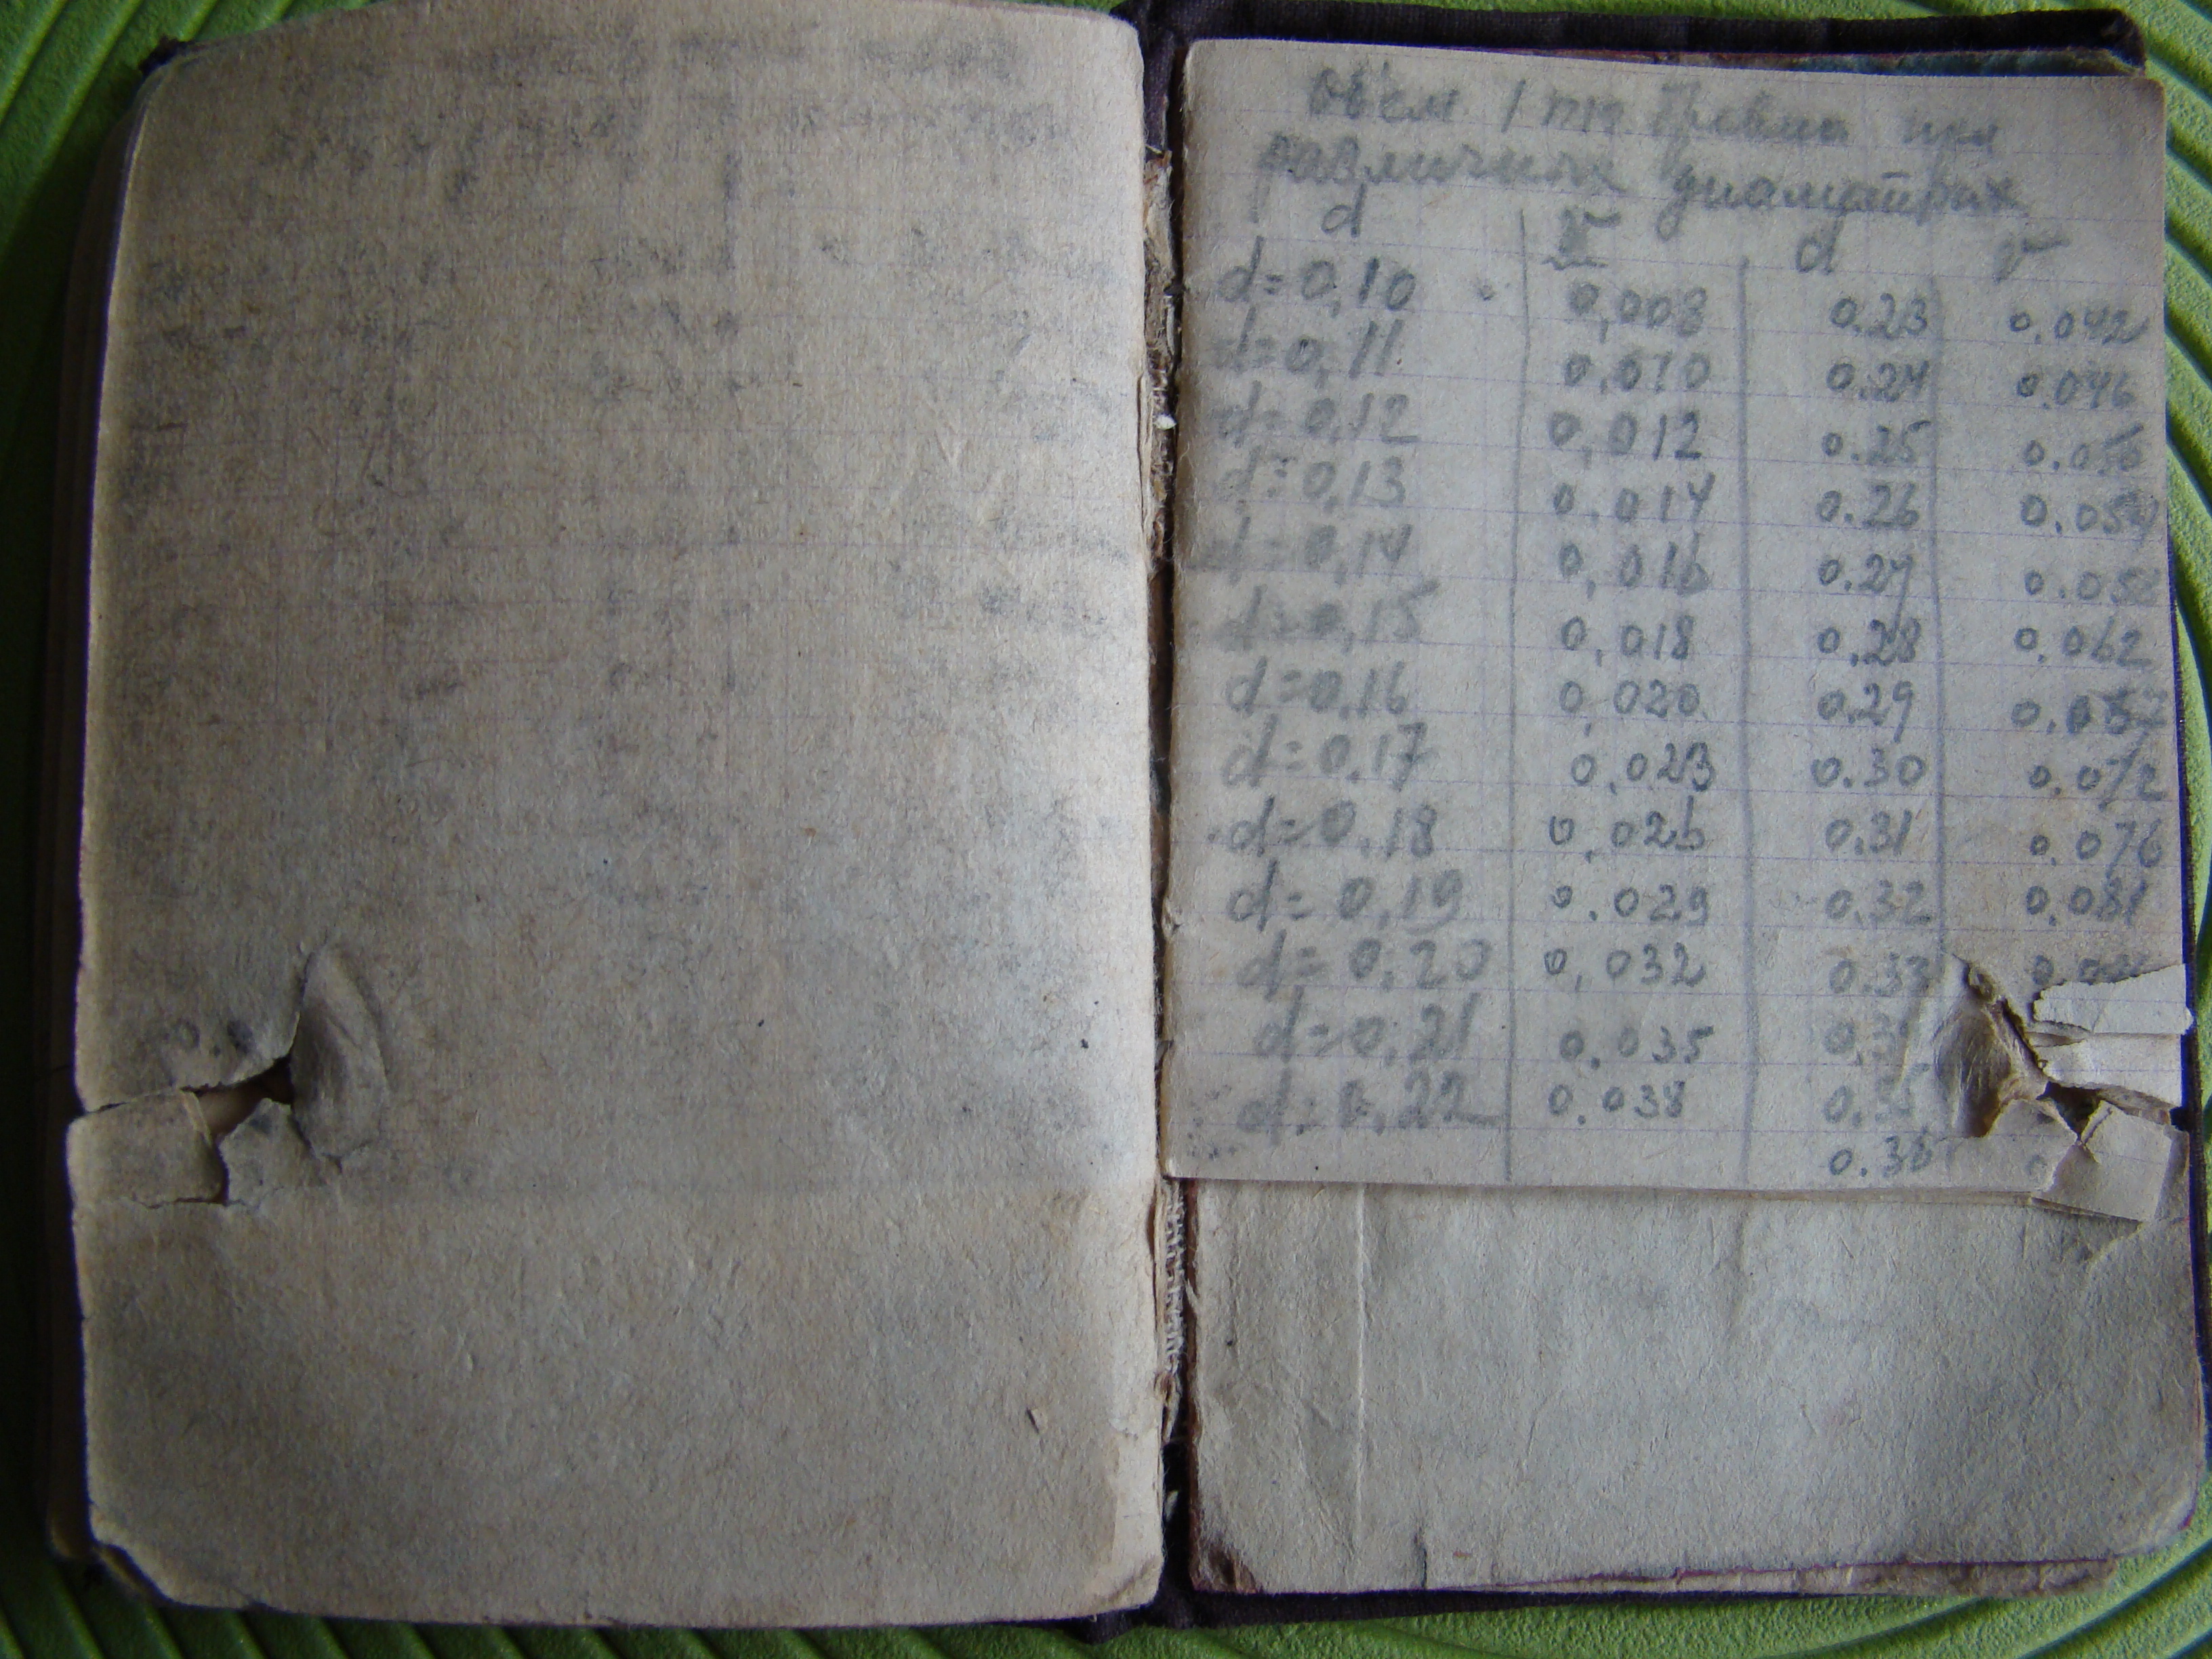 Объем 1 тп бревна при
различных диаметрах
d V d V
d=0,10 0,008 0.23 0.042
d=0,11 0,010 0.24 0.046
d=0,12 0,012 0.25 0.050
d=0,13 0,014 0.26 0.054
d=0,14 0,016 0.27 0.058
d=0,15 0,018 0.28 0.062
d=0,16 0,020 0.29 0.067
d=0,17 0,023 0.30 0.072
d=0,18 0,026 0.31 0.076
d=0,19 0.029 0.32 0.081
d=0,20 0,032 0.33
d=0,21 0.035
d=0,22 0.038 0.35
0.36